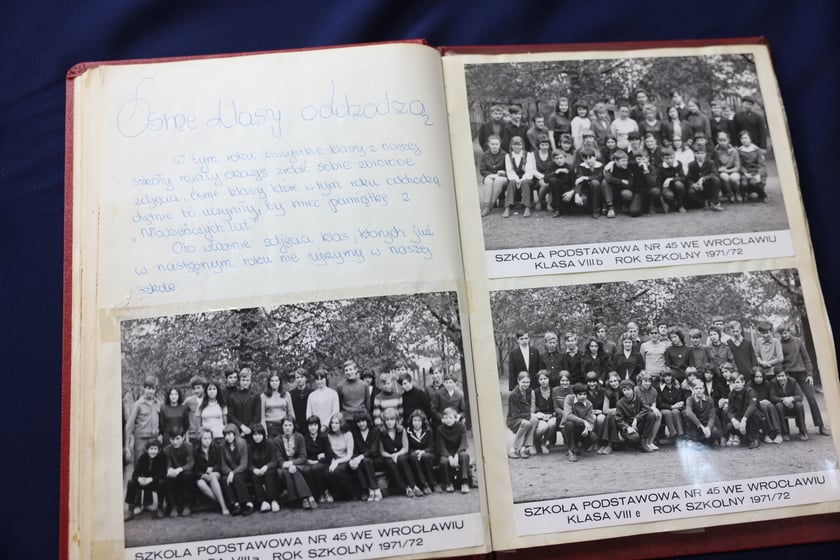 Ósme klasy odchodzą
W tym roku wszystkie klasy z naszej
szkoły miały okazję zrobić sobie zbiorowe
zdjęcia. Ósme klasy które w tym roku odchodzą
chętnie to uczyniły, by mieć pamiątkę z
"Młodzieńczych lat".
Oto właśnie zdjęcia klas, których już
w następnym roku nie ujrzymy w naszej
szkole
SZKOŁA PODSTAWOWA NR 45 WE WROCŁAWIU
KLASA VIII a ROK SZKOLNY 1971/72
SZKOŁA PODSTAWOWA NR 45 WE WROCŁAWIU
KLASA VIII b ROK SZKOLNY 1971/72
SZKOŁA PODSTAWOWA NR 45 WE WROCŁAWIU
KLASA VIII e ROK SZKOLNY 1971/72